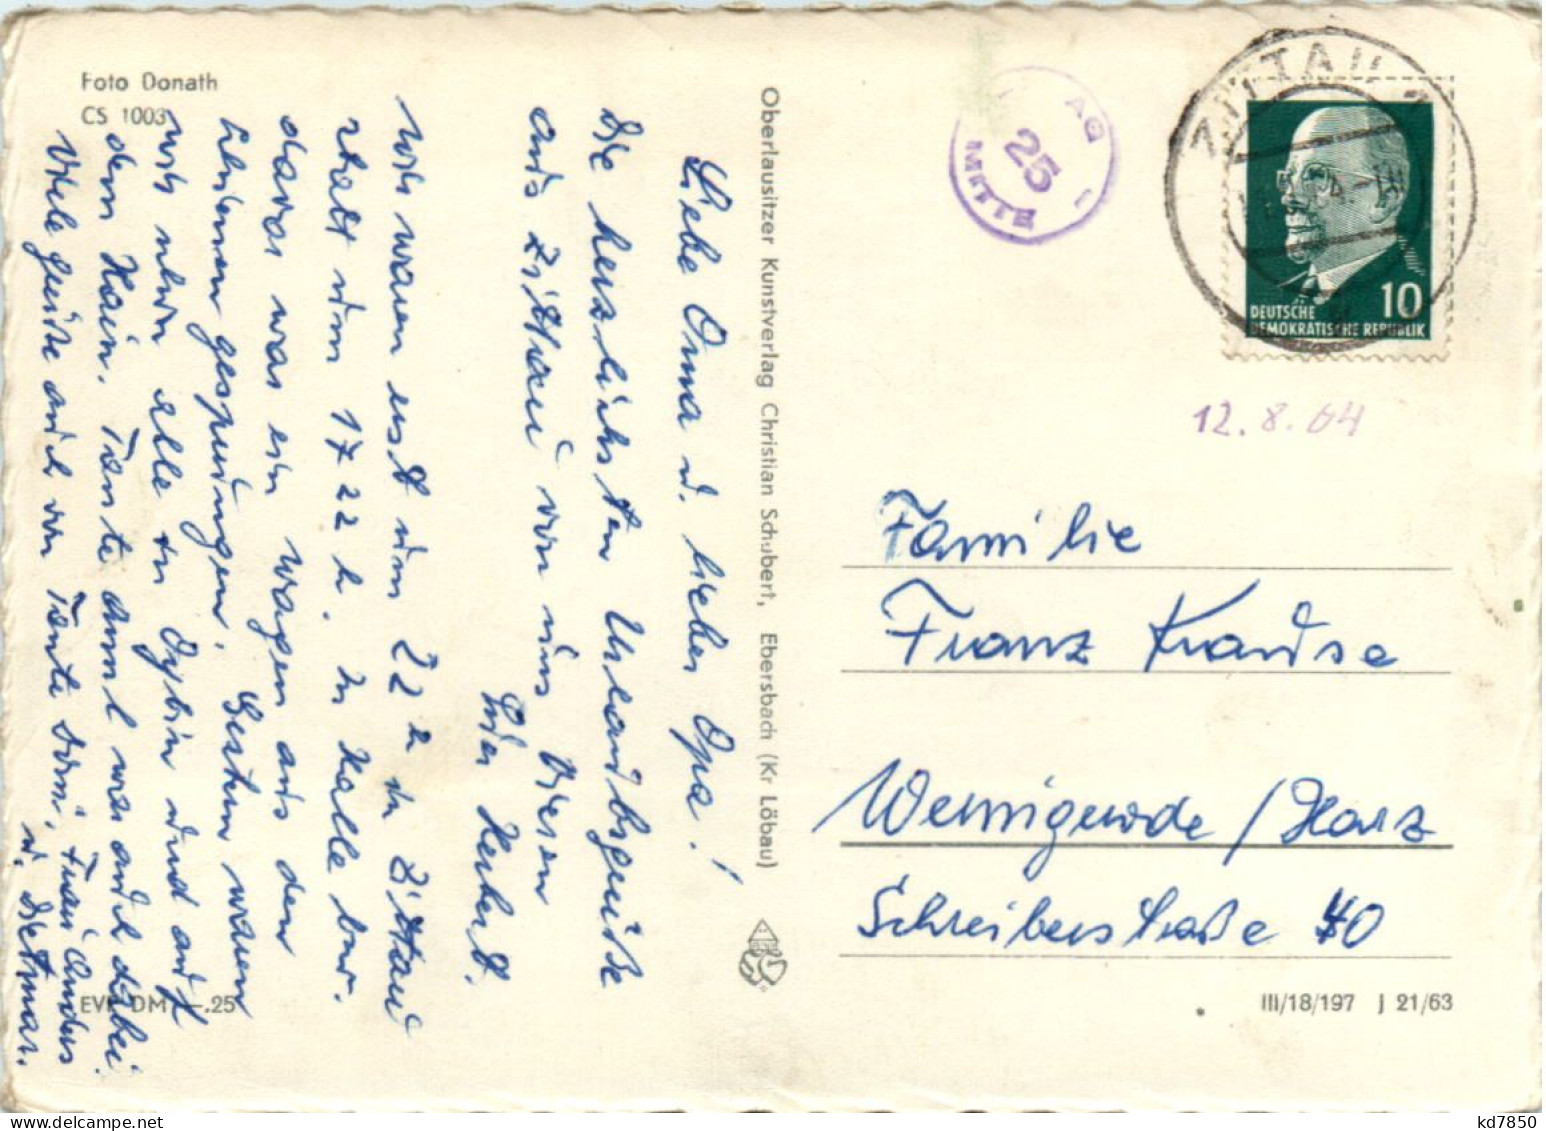 Foto Donath
CS 1003
Liebe Oma u. lieber Opa!
Die herzlichsten Urlaubsgrüße
aus Zittau von uns Dreien
Euer Herbert.
Wir waren erst um 22 h in Zittau
statt um 17 22 h. In Halle bzw.
davor war ein Wagen aus den
Schienen gesprungen. Gestern waren
wir schon alle in Oybin und auf
dem Hain. Tante Annl war auch dabei.
Viele Grüße auch von Tante Annl, Frau
u. Dietmar.
EVP DM -.25
Oberlausitzer Kunstverlag Christian Schubert, Ebersbach (Kr Löbau)
AG
25
MITTE
ZITTAU 1
10
DEUTSCHE
DEMOKRATISCHE REPUBLIK
12.8.64
Familie
Franz Krause
Wernigerode/Harz
Schreiberstraße 40
III/18/197 J 21/63
kd7850